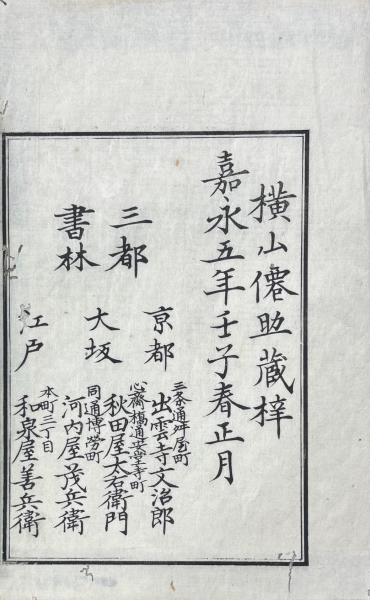 横山僊助蔵梓
嘉永五年壬子春正月
三都
書林
亰都
三条通舛屋町
出雲寺文治郎
大坂
心斎橋通安堂寺町
秋田屋太右衛門
同通博労町
河内屋茂兵衛
江戸
本町三丁目
和泉屋善兵衛